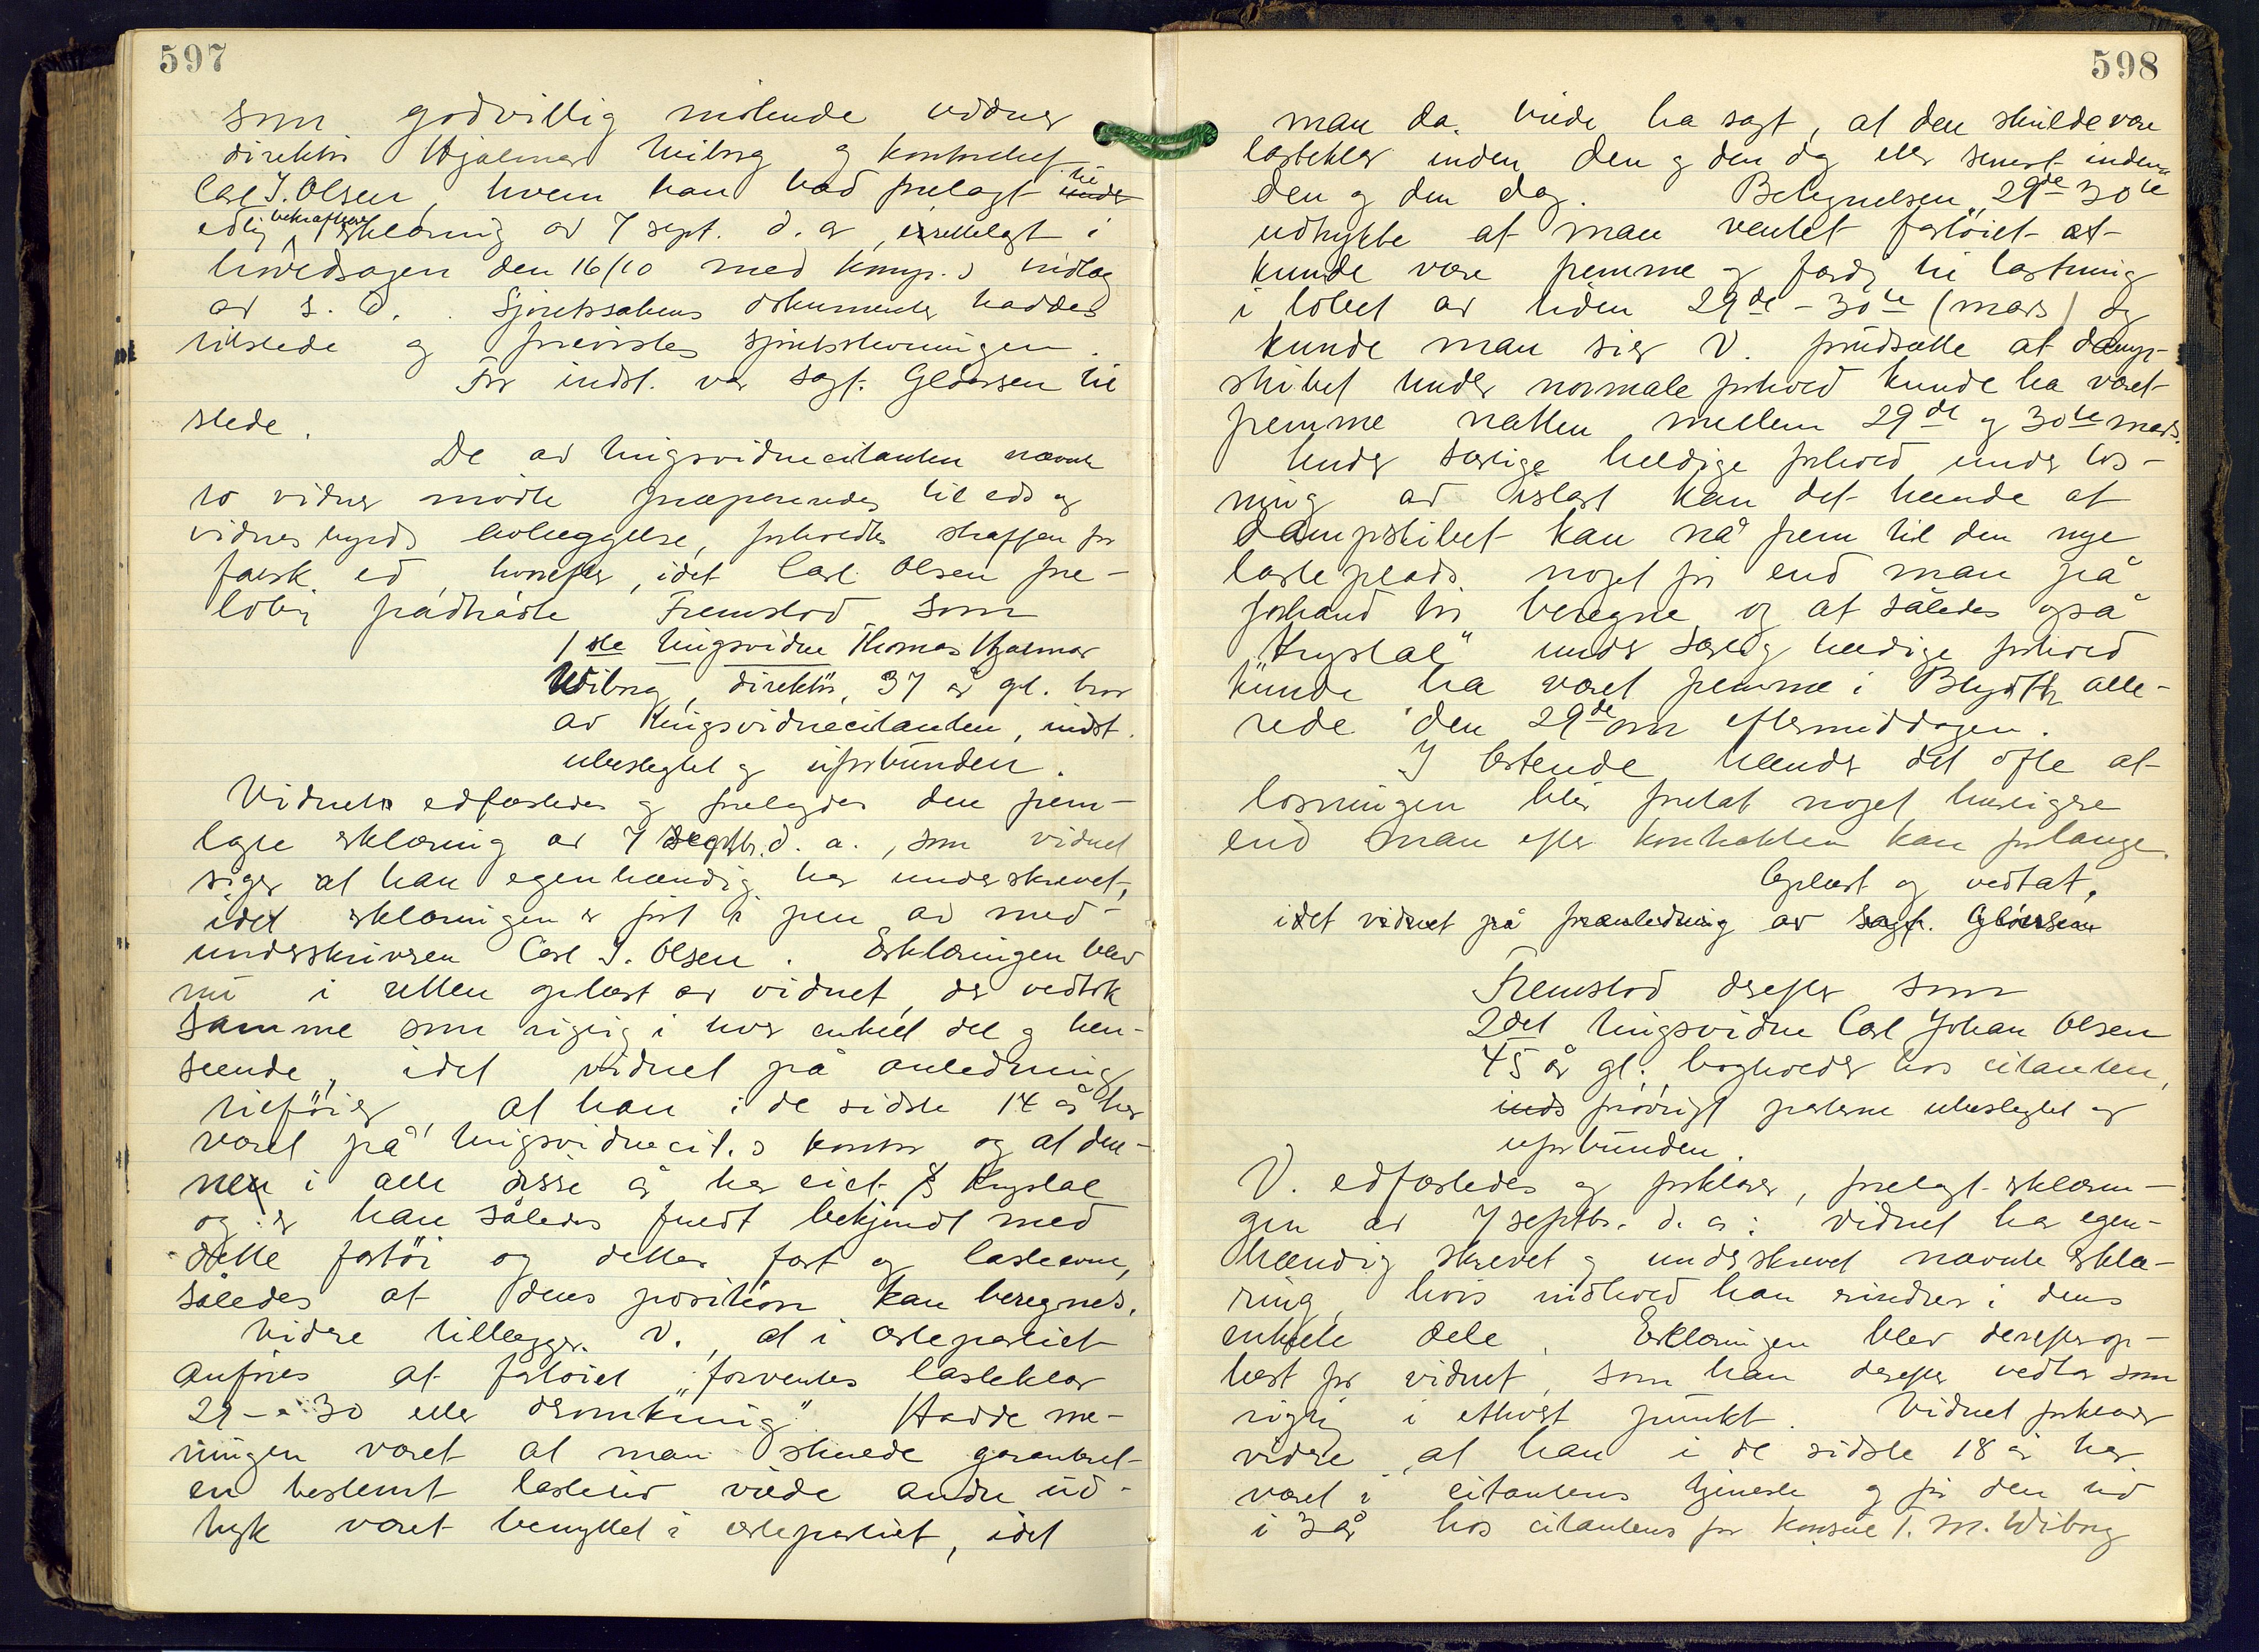 597
som godvillig mötende vidner
direktör Hjalmar Wiborg og kontorchef
Carl J. Olsen, hvem han bad forelagt til
edlig bekræftelse erklæring av 7 sept. d. a., irettelagt i
hovedsagen den 16/10 med komp.s indlæg
av s. d. . Sjöretssakens dokumenter haddes
tilstede og forevistes sjöretsstevningen.
For indst. var sagf. Glöersen til
stede.
De av tingsvidnecitanten nævnte
to vidner mödte præpareredes til eds og
vidnesbyrds avlæggelse, forholdtes straffen for
falsk ed, hvorefter, idet Carl Olsen fore-
löbig fratrådte Fremstod som
1ste tingsvidne Thomas Hjalmar
Wiborg, direktör, 37 år gl. bror
av tingsvidnecitanten, indst.
ubeslegtet og uforbunden.
Vidnet edfæstedes og forelagdes den frem-
lagte erklæring av 7 septbr. d. a., som vidnet
siger at han egenhændig har underskrevet,
idet erklæringen er fört i pen av med-
underskriveren Carl J. Olsen. Erklæringen blev
nu i retten oplæst av vidnet der vedtok
samme som rigtig i hver enkelt del og hen-
seende, idet vidnet på anledning
tilföier, at han i de sidste 14 år har
været på tingsvidnecit.s kontor og at den-
ne i alle disse år har eiet S/S Krystal
og er han således fuldt bekjendt med
dette fartöi og dettes fart og lasteevne,
således at dens position kan beregnes.
Videre tillægger V., at i certepartiet
anföres at fartöiet "forventes lasteklar
29 - 30 eller deromkring". Hadde me-
ningen været at man skulde garanteret
en bestemt lastetid vilde andre ud-
tryk været benyttet i certepartiet, idet
598
man da vilde ha sagt, at den skulde være
lasteklar inden den og den dag eller senest inden
den og den dag. Betegnelsen "29de 30te
udtrykte at man ventet fartöiet at
kunde være fremme og færdig til lastning
i löbet av tiden 29de - 30te (mars) og
kunde man sier V. forudsætte at damp-
skibet under normale forhold kunde ha været
fremme natten mellem 29de og 30te mars.
Under særlige heldige forhold under los-
ning av islast kan det hænde at
dampskibet kan nå frem til den nye
lasteplads noget för end man på
forhand tör beregne og at således også
"Krystal" under særlig heldige forhold
kunde ha været fremme i Blyth alle-
rede den 29de om eftermiddagen.
I Ostende hænder det ofte at
losningen blir foretat noget hurtigere
end man efter kontrakten kan forlange.
Oplæst og vedtat,
idet vidnet på foranledning av sagf. Glöersen
Fremstod derefter som
2det tingsvidne Carl Johan Olsen
45 år gl., bogholder hos citanten,
forövrigt parterne ubeslegtet og
uforbunden.
V. edfæstedes og forklarer, forelagt erklærin-
gen av 7 septbr. d. a: vidnet har egen-
hændig skrevet og underskrevet nævnte erklæ-
ring, hvis indhold han erindrer i dens
enkelte dele. Erklæringen blev derefter op-
læst for vidnet, som han derefter vedtar som
rigtig i ethvert punkt. Vidnet forklarer
videre, at han i de sidste 18 år har
været i citantens tjeneste og för den tid
i 3 år hos citantens far konsul T. M. Wiborg